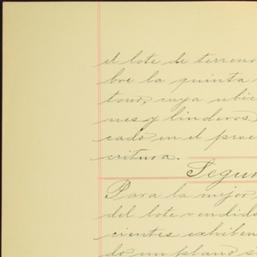 el lote de terreno
bre la quinta
tour, cuya ubic
nes y linderos
cado en el proe
critura.
Segun
Para la mejor
del lote vendido
cientes exhiben
do un plano s